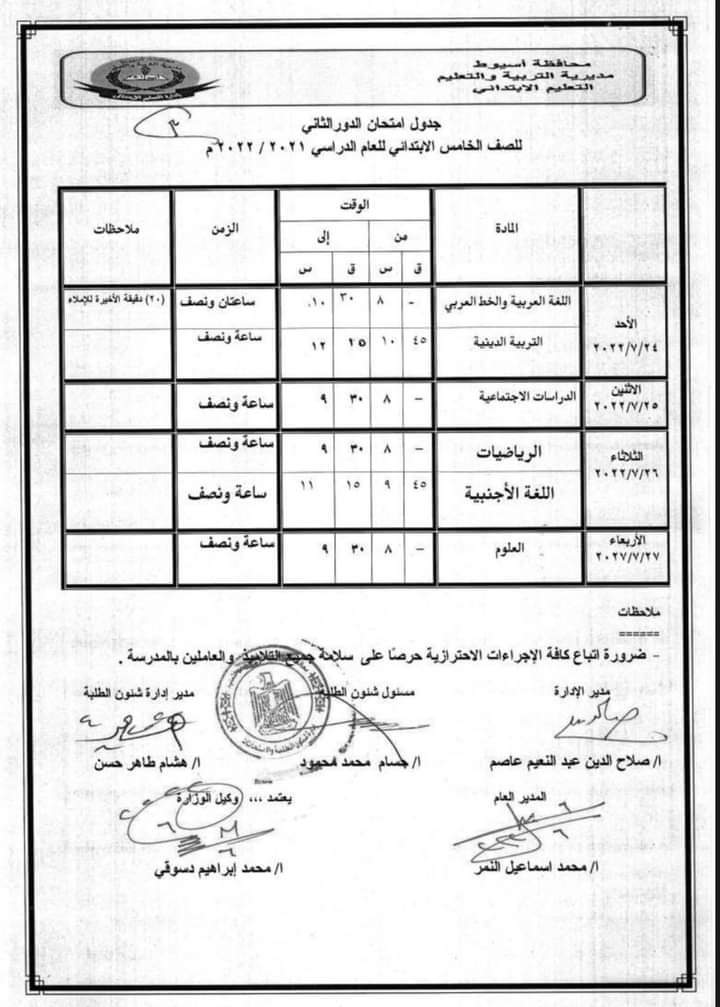 محافظة أسيوط
مديرية التربية والتعليم
التعليم الابتدائي
جدول امتحان الدور الثاني
للصف الخامس الابتدائي للعام الدراسي ٢٠٢١ / ٢٠٢٢ م
المادة الوقت الزمن ملاحظات
من إلى
ق س ق س
الأحد ٢٠٢٢/٧/٢٤ اللغة العربية والخط العربي - ٨ ٣٠ ١٠ ساعتان ونصف (٢٠) دقيقة الأخيرة للإملاء
التربية الدينية ٤٥ ١٠ ١٥ ١٢ ساعة ونصف
الاثنين ٢٠٢٢/٧/٢٥ الدراسات الاجتماعية - ٨ ٣٠ ٩ ساعة ونصف
الثلاثاء ٢٠٢٢/٧/٢٦ الرياضيات - ٨ ٣٠ ٩ ساعة ونصف
اللغة الأجنبية ٤٥ ٩ ١٥ ١١ ساعة ونصف
الأربعاء ٢٠٢٧/٧/٢٧ العلوم - ٨ ٣٠ ٩ ساعة ونصف
ملاحظات
======
- ضرورة اتباع كافة الإجراءات الاحترازية حرصا على سلامة جميع التلاميذ والعاملين بالمدرسة .
مدير الإدارة مسئول شئون الطلبة مدير إدارة شئون الطلبة
ا/ صلاح الدين عبد النعيم عاصم ا/ حسام محمد محمود ا/ هشام طاهر حسن
المدير العام يعتمد ,,, وكيل الوزارة
ا/ محمد اسماعيل النمر ا/ محمد إبراهيم دسوقي